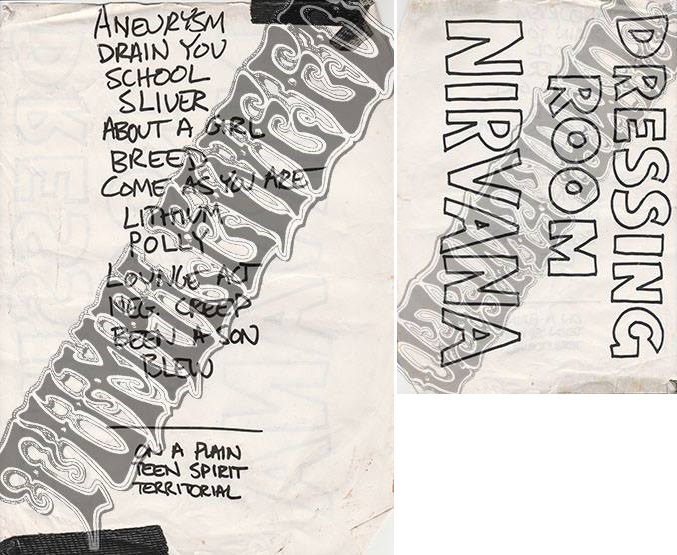 ANEURYSM
DRAIN YOU
SCHOOL
SLIVER
ABOUT A GIRL
BREED
COME AS YOU ARE
LITHIUM
POLLY
LOUNGE ACT
NEG. CREEP
BEEN A SON
BLEW
ON A PLAIN
TEEN SPIRIT
TERRITORIAL
DRESSING
ROOM
NIRVANA